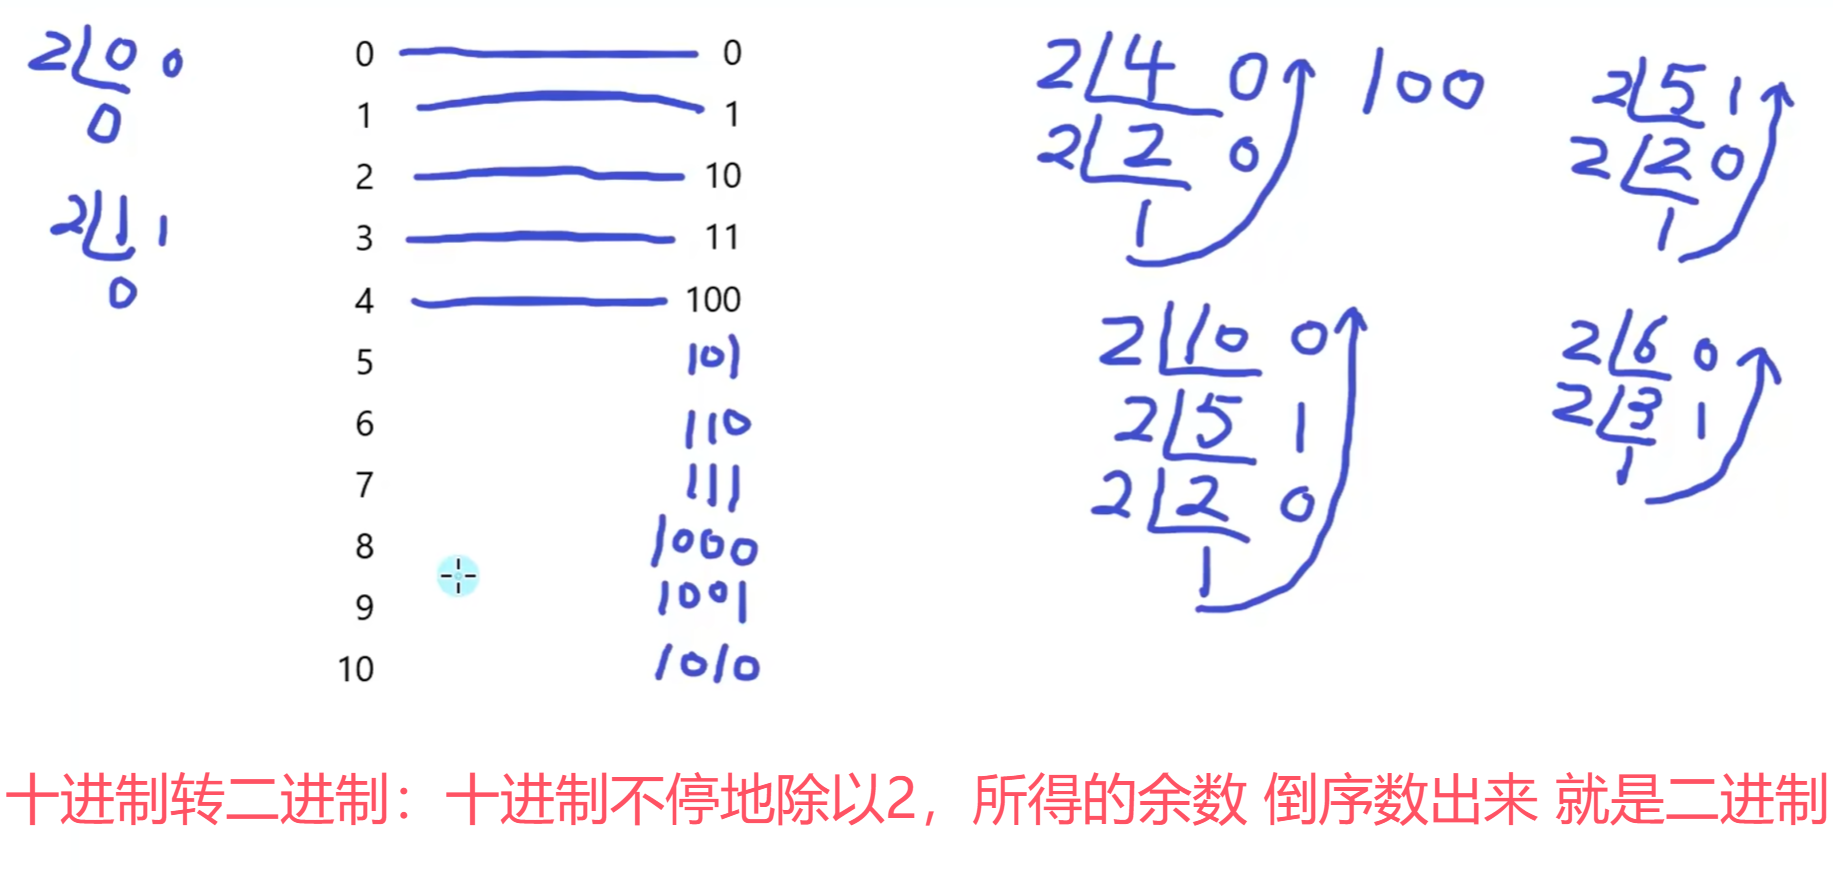 2 0 0
0
2 1 1
0
0 0
1 1
2 10
3 11
4 100
5 101
6 110
7 111
8 1000
9 1001
10 1010
2 4 0 100
2 2 0
1
2 5 1
2 2 0
1
2 10 0
2 5 1
2 2 0
1
2 6 0
2 3 1
1
十进制转二进制：十进制不停地除以2，所得的余数 倒序数出来 就是二进制